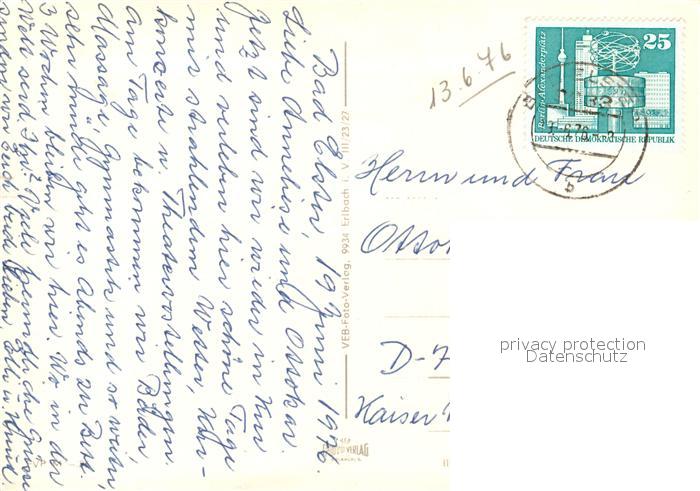 Bad Elster, 19. Juni 1976.
Liebe Anneliese und Ottokar.
Jetzt sind wir wieder in Kur
und verleben hier schöne Tage
mit strahlendem Wetter, Kur-
konzerte u. Theatervorstellungen.
Am Tage bekommen wir Bäder,
Massage, Gymnastik und so weiter,
sehr müde geht's Abends zu Bett.
3 Wochen bleiben wir hier. Wo in der
Welt seid Ihr? Viele
senden wir Euch beid
VEB-Foto-Verlag, 9934 Erlbach i. V. III/23/27
13.6.76
25
Berlin-Alexanderplatz
DEUTSCHE DEMOKRATISCHE REPUBLIK
Herrn und Frau
Ottok
D-7
Kaiser
privacy protection
Datenschutz